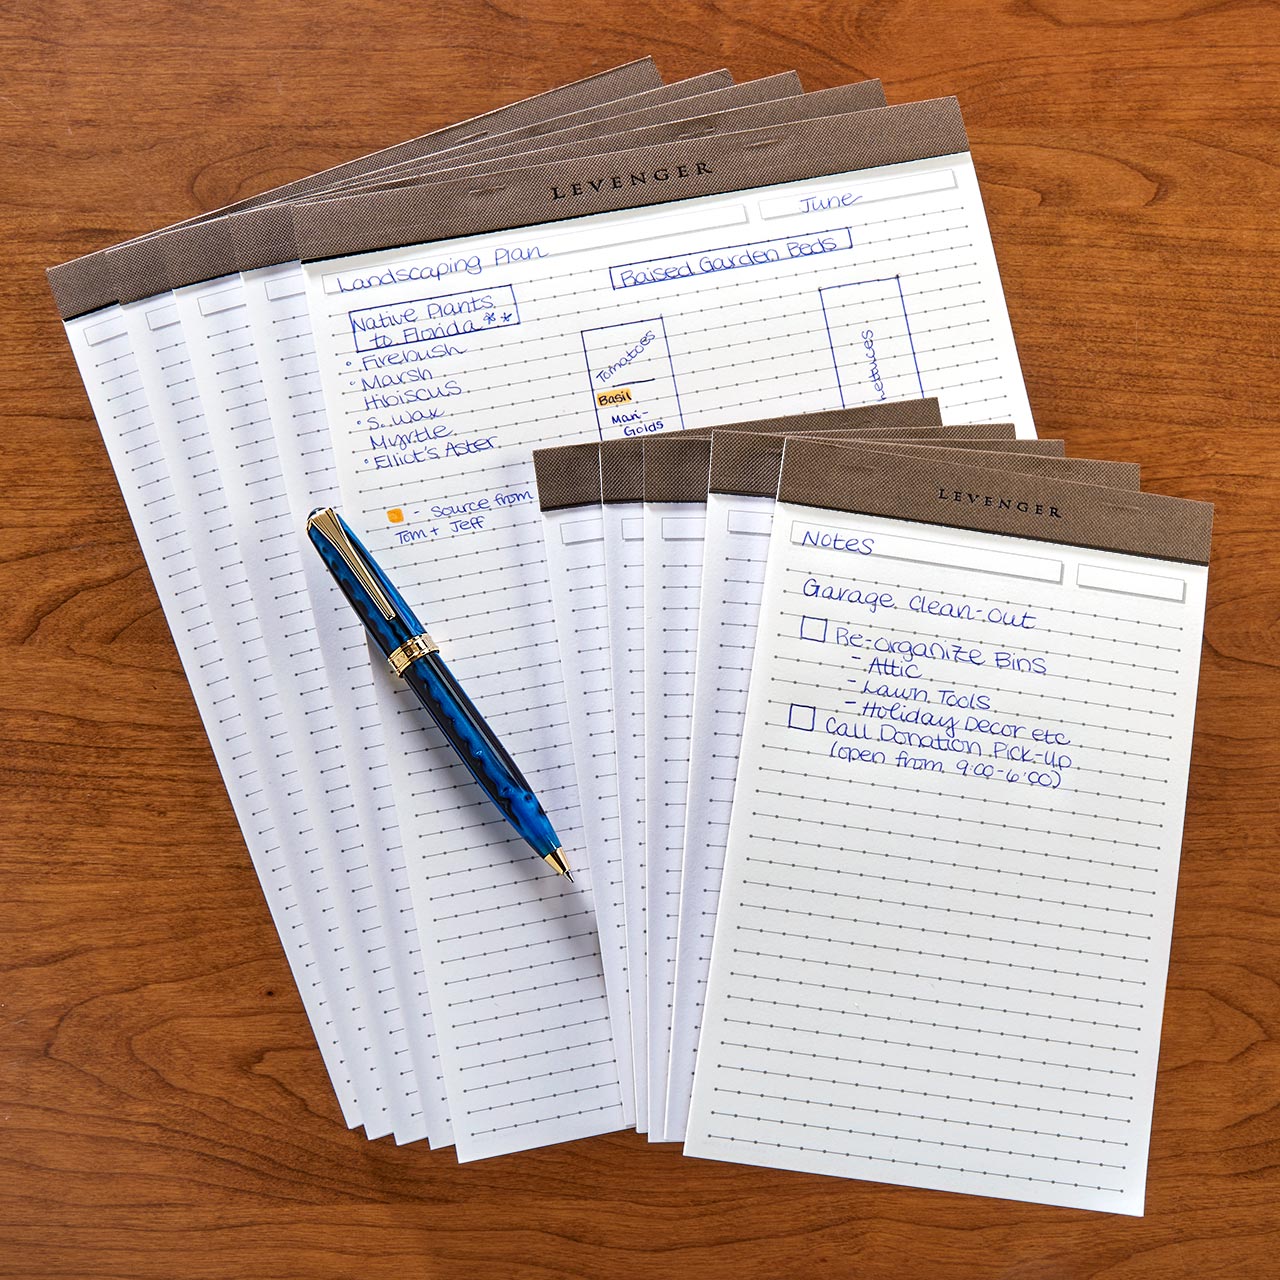 LEVENGER
June
Landscaping Plan
Raised Garden Beds
Native Plants
to Florida **
• Firebush
• Marsh
Hibiscus
• S. Wax
Myrtle
• Elliot's Aster
- Source from
Tom + Jeff
Tomatoes
Basil
Mari-
Golds
Lettuces
LEVENGER
Notes
Garage Clean-out
Re-organize Bins
- Attic
- Lawn Tools
- Holiday Decor etc
Call Donation Pick-up
(open from 9:00-6:00)